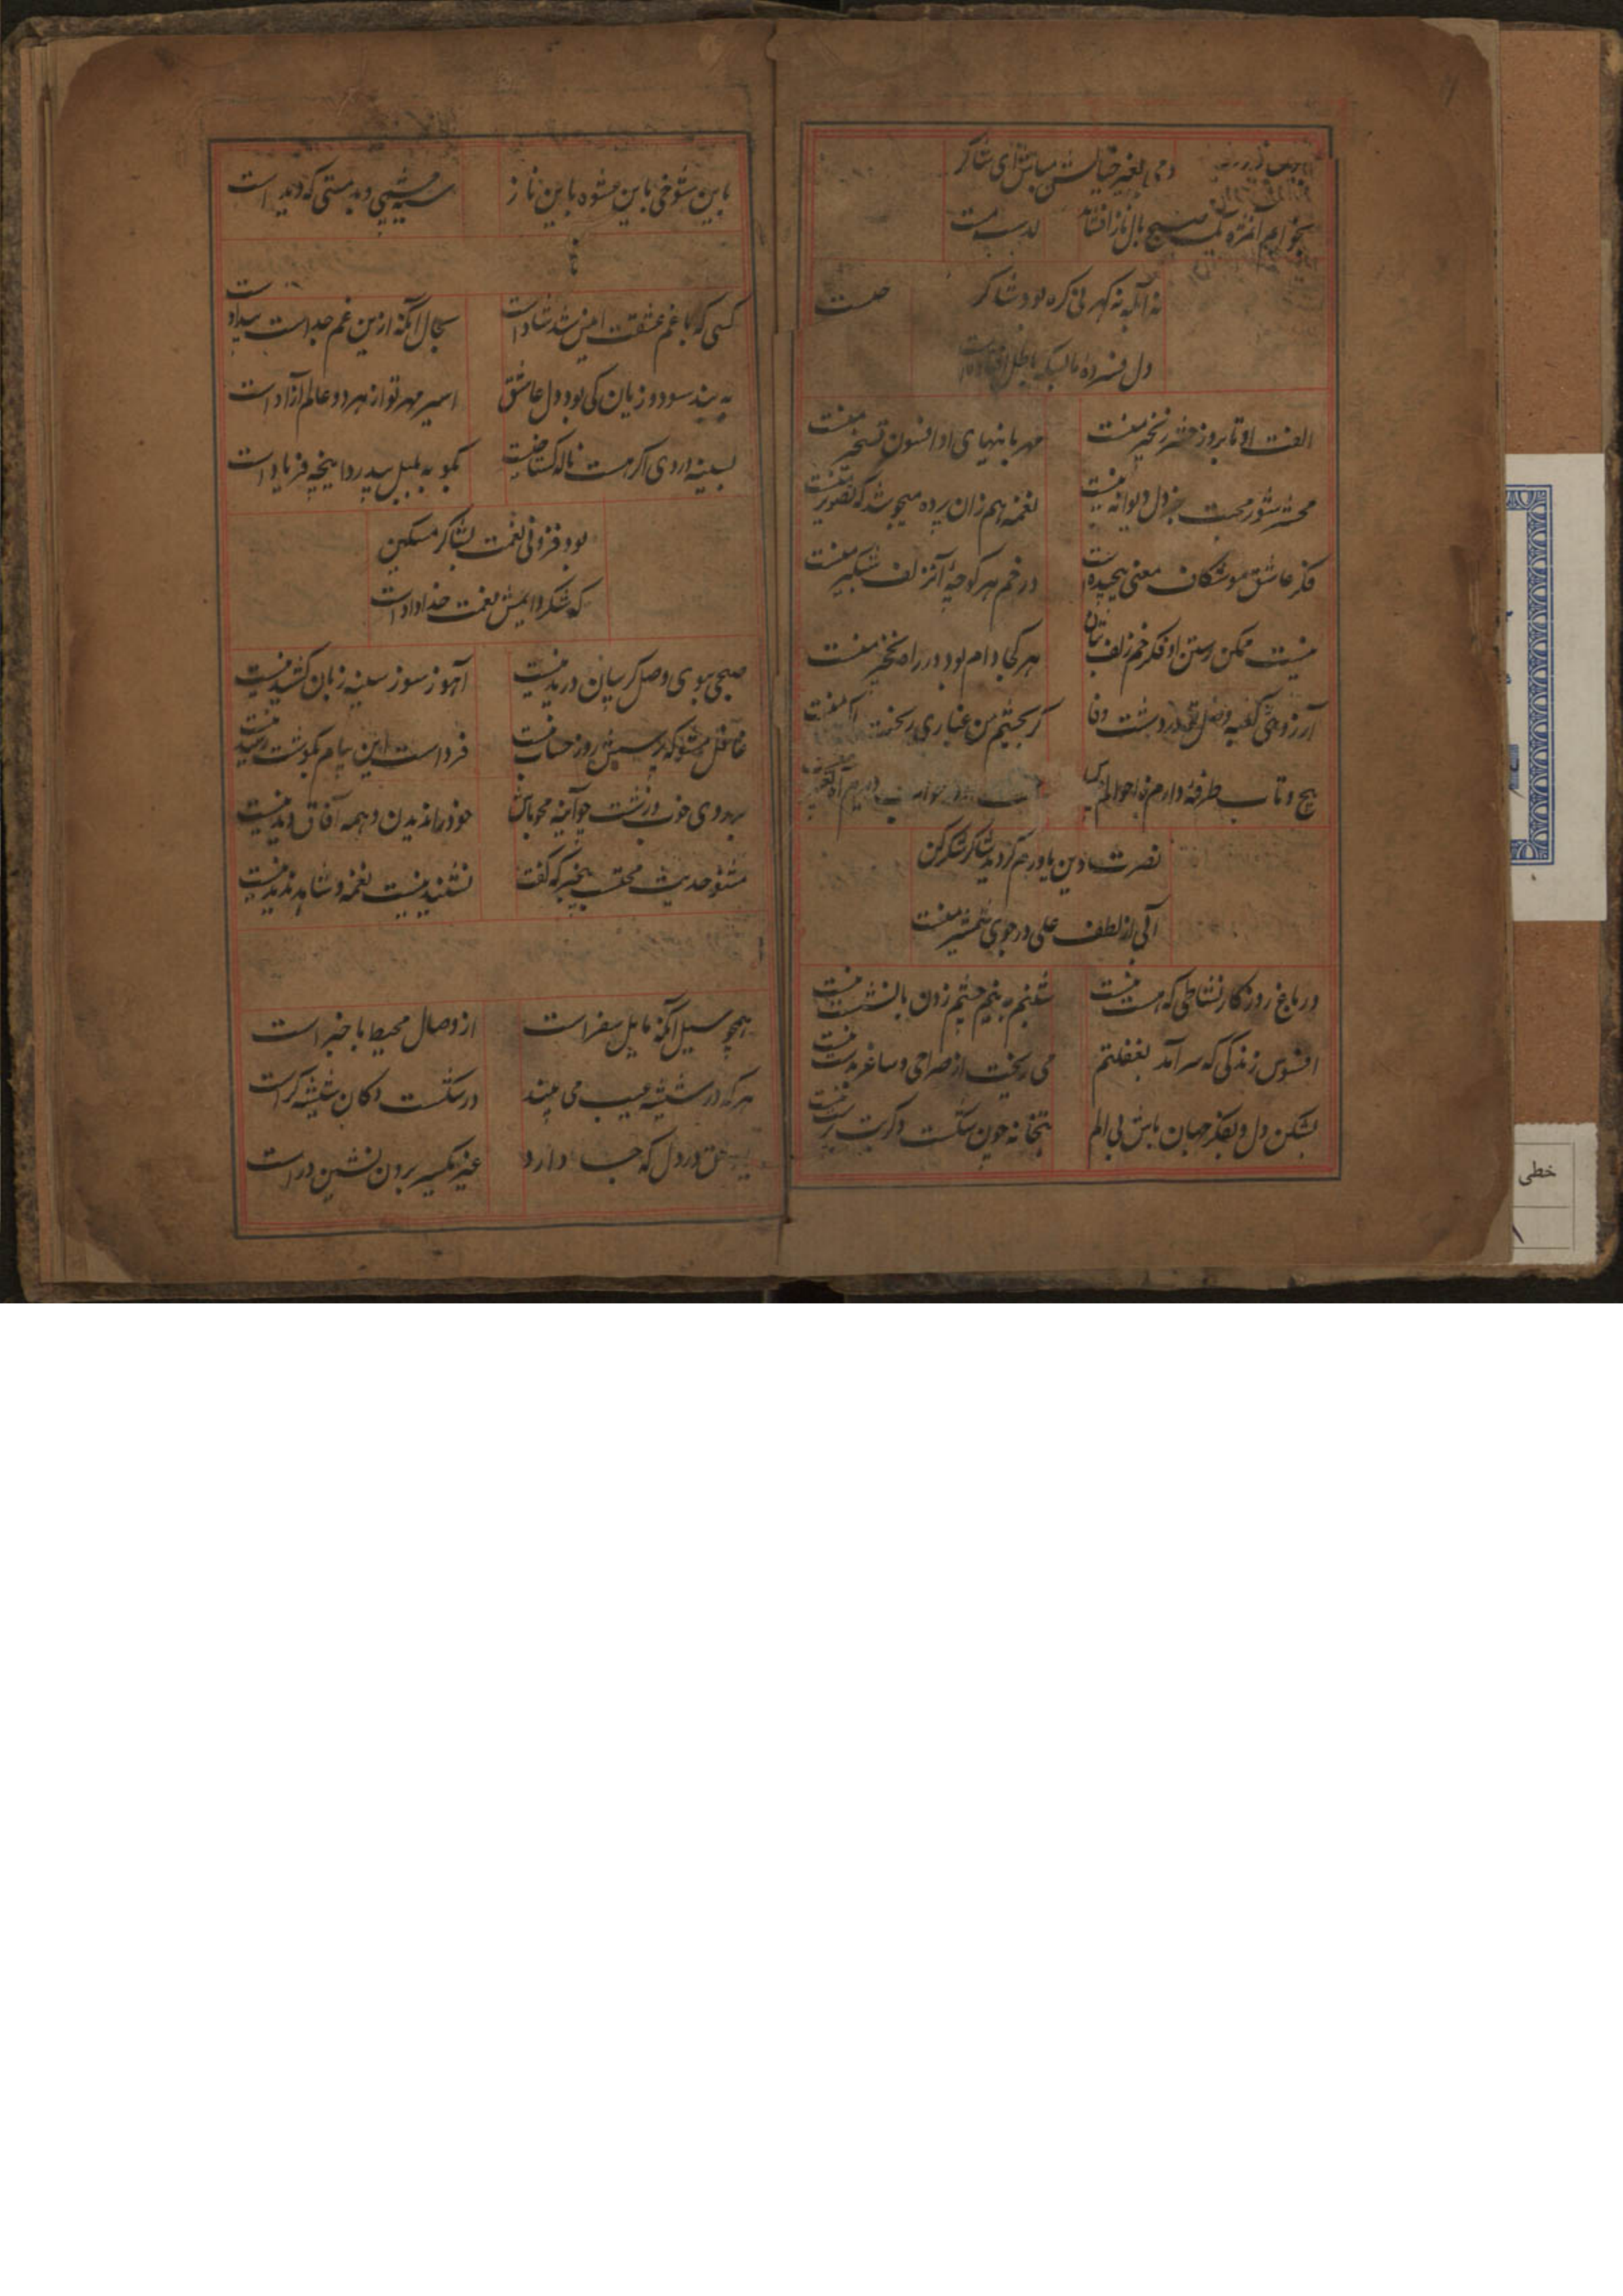 دمی بغیر خیالش مباش ای شاکر
صبح بال ناز افشاند
نه آبله نه گهر بی گره بود شاکر
دل فسرده ما
الفت او تا بروز حشر زنجیر منست
مهربانیهای او افسون تسخیر منست
محشر شور محبت جز دل دیوانه نیست
نغمه هم زان پرده میجوشد که تصویر منست
فکر عاشق موشکاف معنی پیچیده است
در خم هر کوچه آن زلف شبگیر منست
نیست ممکن رستن از فکر خم زلف بتان
هر کجا دام بود در راه نخچیر منست
آرزوی کعبه وصل تو در دشت وفا
گر بچشم من غباری ریخت اکسیر منست
پیچ و تاب طرفه دارم
نصرت دین یاورم گردید شاکر شکر کن
آبی از لطف علی در جوی شمشیر منست
در باغ روزگار نشاطی که هست نیست
شبنم به نیم چشم زدن بالنشست نیست
افسوس زندگی که سرآمد بغفلتم
می ریخت از صراحی و ساغر بدست نیست
بشکن دل و بفکر جهان باش بی الم
بتخانه چون شکست دگر بت پرست نیست
باین شوخی باین عشوه باین ناز
سیه چشمی و بدمستی که دیده است
کسی که با غم عشقت انیس شد شاد است
بحال آنکه ازین غم جداست بیداد است
به بند سود و زیان کی بود دل عاشق
اسیر مهر تو از هر دو عالم آزاد است
بسینه دردی اگر هست ناله گستاخیست
بگو به بلبل بیدرد این چه فریاد است
بود فزونی نعمت بشاکر مسکین
که شکر دایمش نعمت خداداد است
صبحی ببوی وصل گریبان دریده نیست
آهم ز سوز سینه زبان کشیده نیست
غافل مشو که پرسش روز حساب هست
فرداست این پیام بگوشت رسیده نیست
بر روی خوب و زشت چو آینه محو باش
خود را ندیدن و همه آفاق دیده نیست
مشنو حدیث محتسب بیخبر که گفت
نشنیدنیست نغمه و شاهد ندیدنیست
همچو سیل آنکه مایل سفر است
از وصال محیط با خبر است
هر که در شیشه عیب می بیند
در شکست دکان شیشه گر است
عشق در دل که جا دارد
غیر یکسر برون نشین در است
خطی